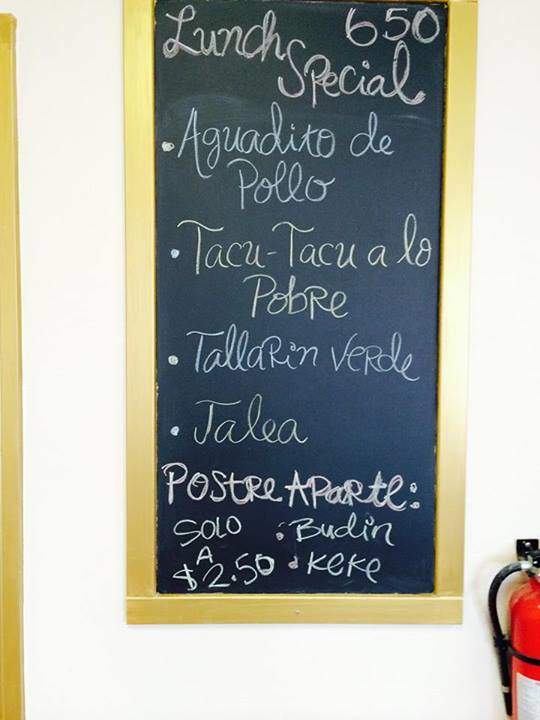 Lunch 650
Special
• Aguadito de
Pollo
• Tacu-Tacu a lo
Pobre
• Tallarin verde
• Jalea
Postre Aparte:
SOLO : Budin
A
$2.50 • Keke